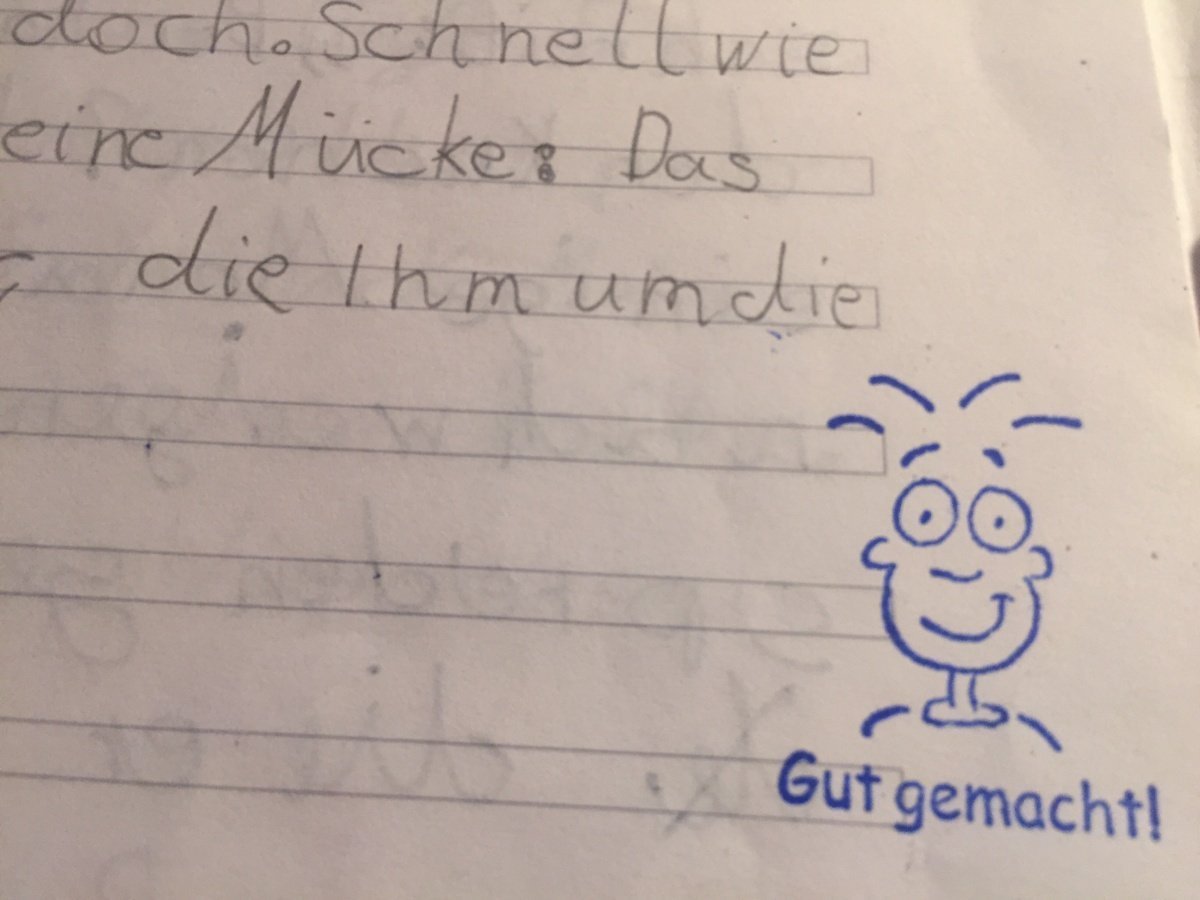 doch. Schnell wie
eine Mücke: Das
die Ihm um die
Gut gemacht!